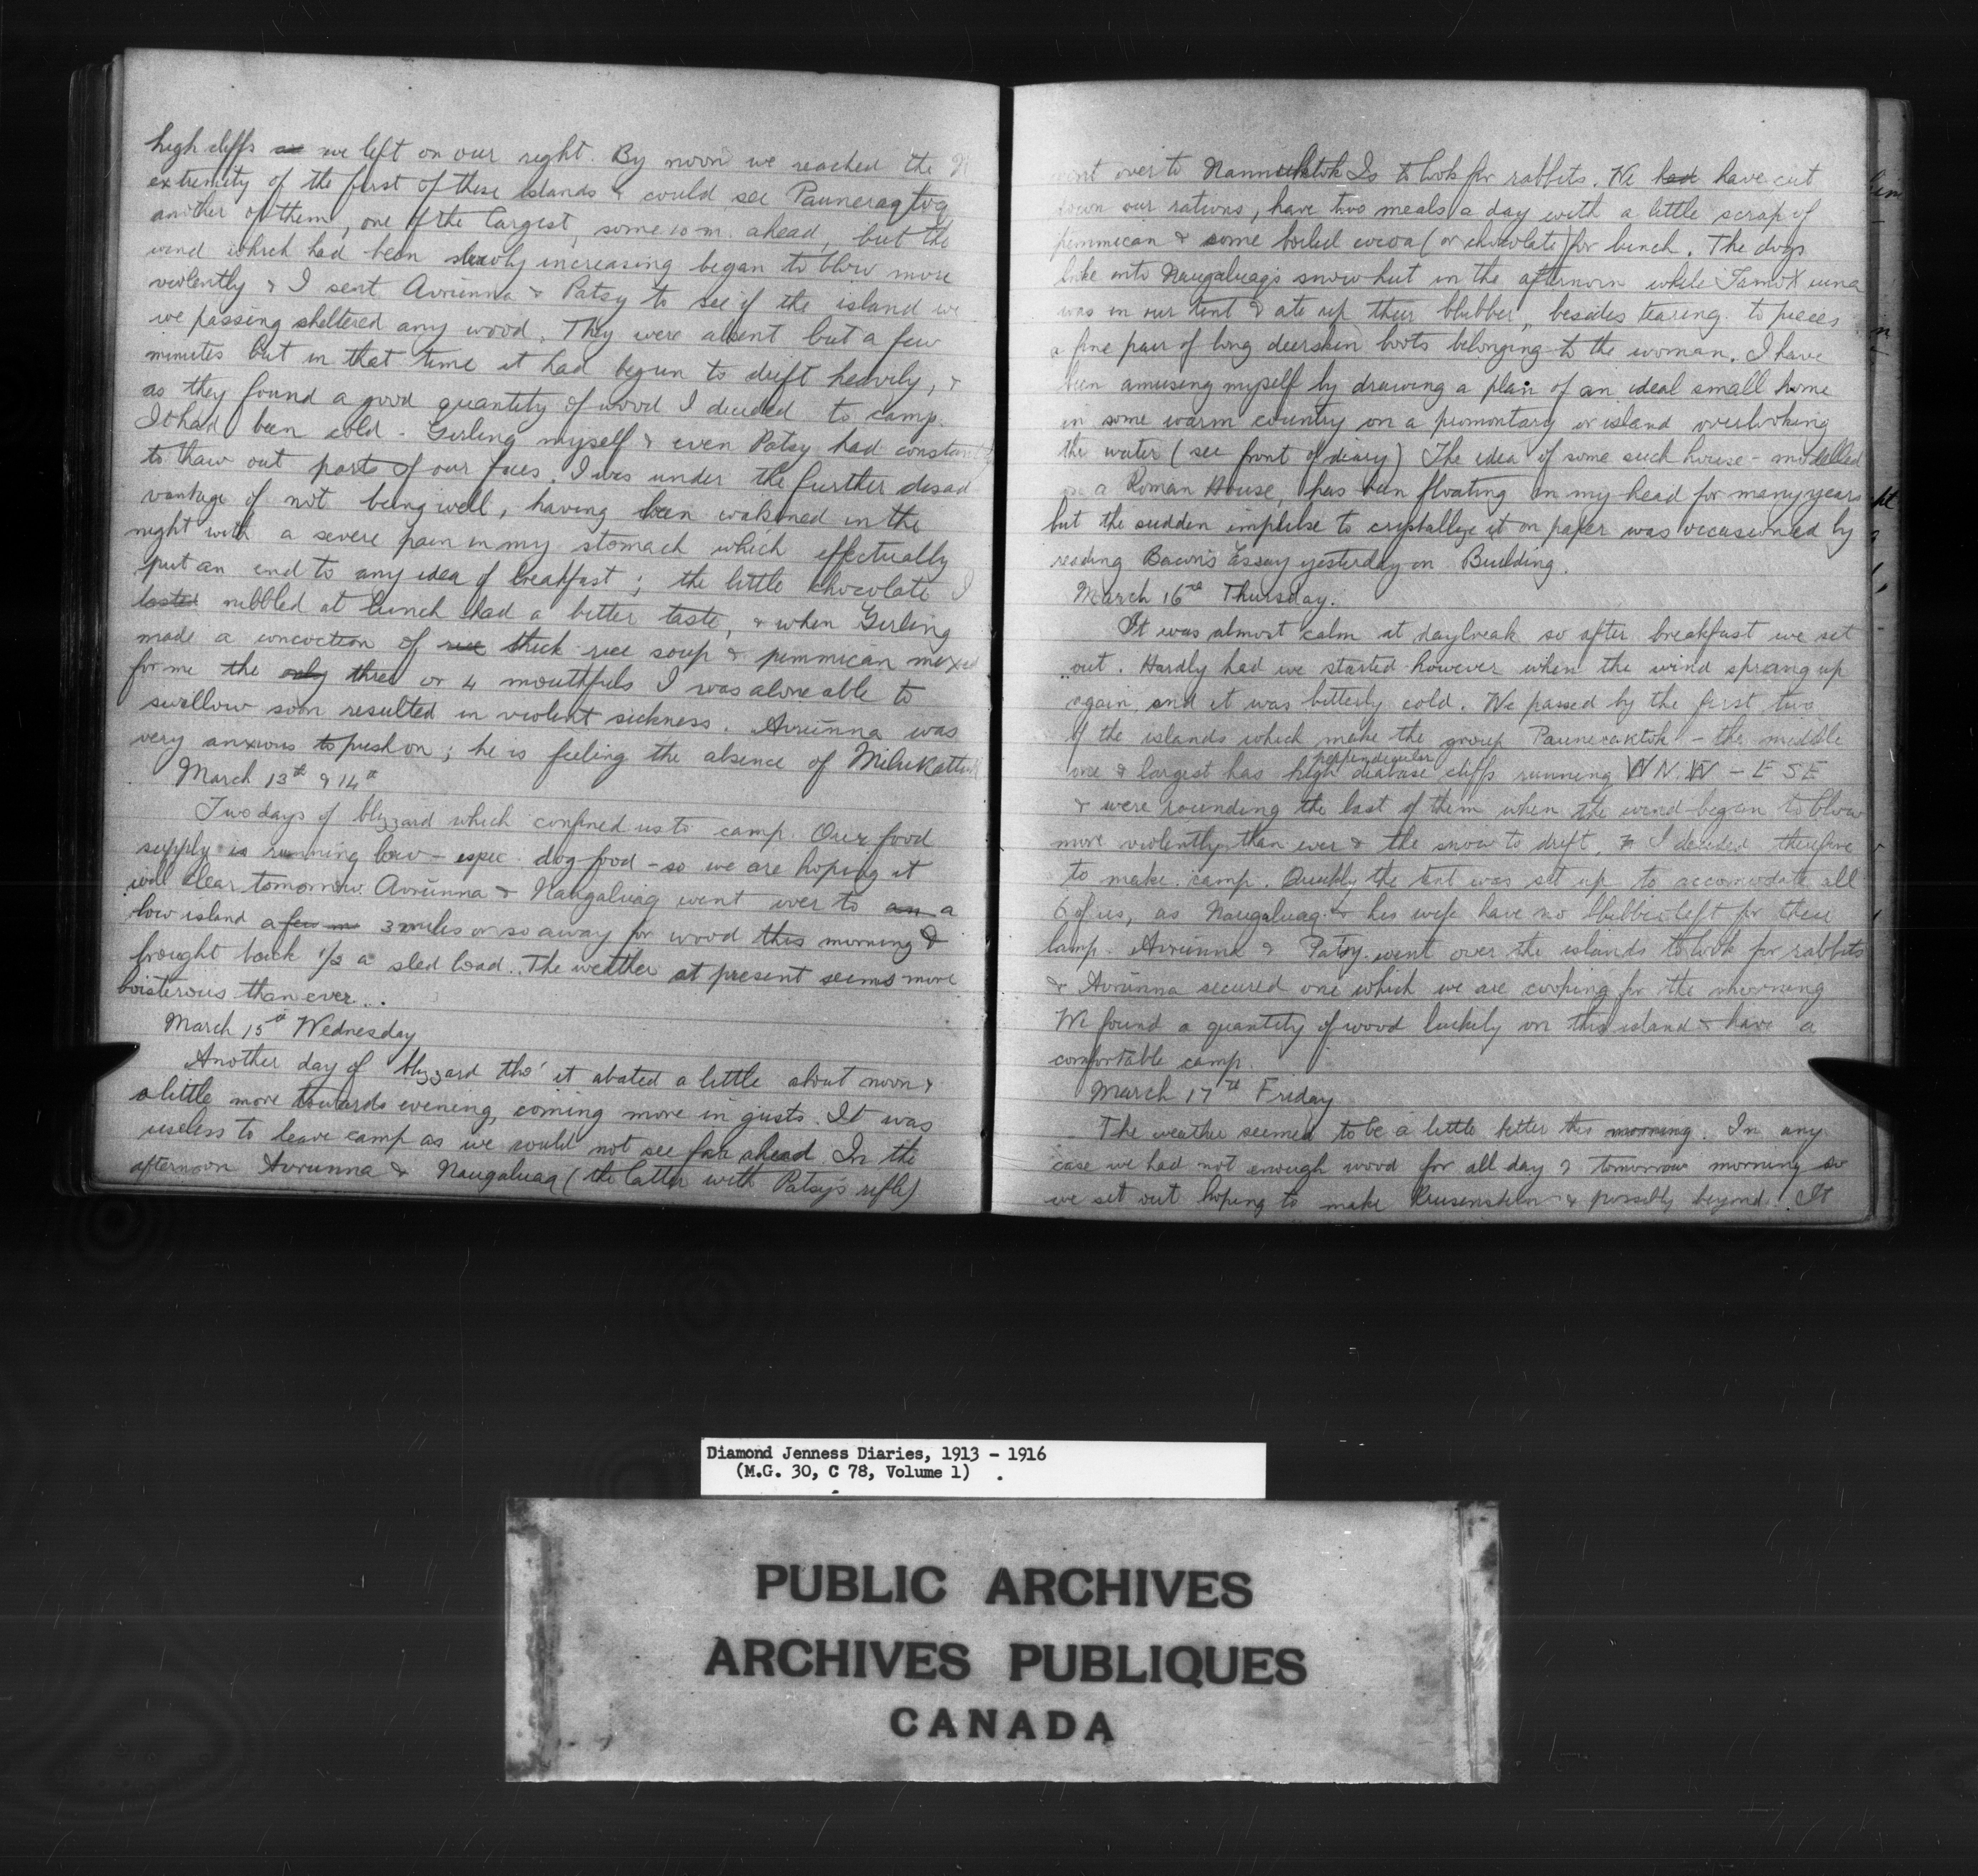 high cliffs we left on our right. By noon we reached the N
extremity of the first of these islands & could see Pauneragtoq
another of them, one of the largest, some 10 m. ahead, but the
wind which had been slowly increasing began to blow more
violently & I sent Avrunna & Patsy to see if the island we
we passing sheltered any wood. They were absent but a few
minutes but in that time it had begun to drift heavily, &
as they found a good quantity of wood I decided to camp.
It had been cold - Girling myself & even Patsy had constantly
to thaw out parts of our faces. I was under the further disad
vantage of not being well, having been wakened in the
night with a severe pain in my stomach which effectually
put an end to any idea of breakfast; the little chocolate I
tasted nibbled at lunch had a better taste, & when Girling
made a concoction of rice thick rice soup & pemmican mixed
for me the only three or 4 mouthfuls I was alone able to
swallow soon resulted in violent sickness. Avrunna was
very anxious to push on; he is feeling the absence of Milukattuk
March 13th & 14th
Two days of blizzard which confined us to camp. Our food
supply is running low - espec. dog food - so we are hoping it
will clear tomorrow. Avrunna & Naugaluaq went over to an a
low island a few m 3 miles or so away for wood this morning &
brought back 1/2 a sled load. The weather at present seems more
boisterous than ever.
March 15th Wednesday
Another day of blizzard tho' it abated a little about noon &
a little more towards evening, coming more in gusts. It was
useless to leave camp as we could not see far ahead. In the
afternoon Avrunna & Naugaluaq (the latter with Patsy's rifle)
went over to Nannuktok Is to look for rabbits. We had have cut
down our rations, have two meals a day with a little scrap of
pemmican & some boiled cocoa (or chocolate) for lunch. The dogs
broke into Naugaluaq's snow hut in the afternoon while
was in our tent & ate up their blubber, besides tearing to pieces
a fine pair of long deerskin boots belonging to the woman. I have
been amusing myself by drawing a plan of an ideal small home
in some warm country on a promontary or island overlooking
the water (see front of diary) The idea of some such house - modelled
on a Roman House, has been floating in my head for many years
but the sudden impulse to crystallize it on paper was occasioned by
reading Bacon's Essay yesterday on Building.
March 16th Thursday.
It was almost calm at daybreak so after breakfast we set
out. Hardly had we started however when the wind sprang up
again and it was bitterly cold. We passed by the first two
of the islands which make the group Pauneraktok - the middle
perpendicular
one & largest has high diabase cliffs running WN.W - ESE
& were rounding the last of them when the wind began to blow
more violently than ever & the snow to drift, I decided therefore
to make camp. Quickly the tent was set up to accomodate all
6 of us, as Naugaluaq & his wife have no blubber left for their
lamp. Avrunna & Patsy went over the islands to look for rabbits
& Avrunna secured one which we are cooking for the morning
We found a quantity of wood luckily on this island & have a
comfortable camp.
March 17th Friday
The weather seemed to be a little better this morning. In any
case we had not enough wood for all day & tomorrow morning so
we set out hoping to make Krusenstern & possibly beyond. It
Diamond Jenness Diaries, 1913 - 1916
(M.G. 30, C 78, Volume 1)
PUBLIC ARCHIVES
ARCHIVES PUBLIQUES
CANADA